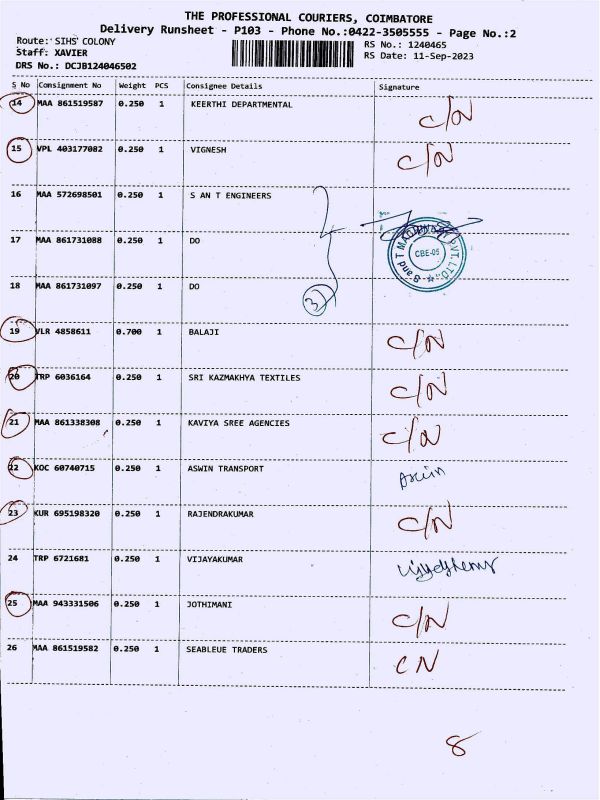 THE PROFESSIONAL COURIERS, COIMBATORE
Delivery Runsheet - P103 - Phone No.:0422-3505555 - Page No.:2
Route: SIHS COLONY RS No.: 1240465
Staff: XAVIER RS Date: 11-Sep-2023
DRS No.: DCJB124046502
S No Consignment No Weight PCS Consignee Details Signature
14 MAA 861519587 0.250 1 KEERTHI DEPARTMENTAL C/N
15 VPL 403177082 0.250 1 VIGNESH C/N
16 MAA 572698501 0.250 1 S AN T ENGINEERS
17 MAA 861731088 0.250 1 DO CBE-05
18 MAA 861731097 0.250 1 DO 3
19 VLR 4858611 0.700 1 BALAJI C/N
20 TRP 6036164 0.250 1 SRI KAZMAKHYA TEXTILES C/N
21 MAA 861338308 0.250 1 KAVIYA SREE AGENCIES C/N
22 KOC 60740715 0.250 1 ASWIN TRANSPORT
23 KUR 695198320 0.250 1 RAJENDRAKUMAR C/N
24 TRP 6721681 0.250 1 VIJAYAKUMAR
25 MAA 943331506 0.250 1 JOTHIMANI C/N
26 MAA 861519582 0.250 1 SEABLEUE TRADERS CN
8